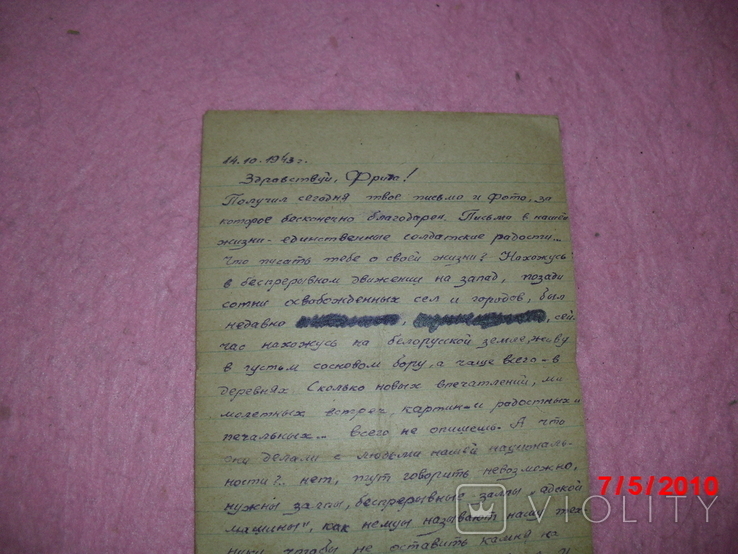 14.10.1943 г.
Здравствуй, Фрида!
Получил сегодня твое письмо и фото, за
которое бесконечно благодарен. Письма в нашей
жизни - единственные солдатские радости...
Что писать тебе о своей жизни? Нахожусь
в беспрерывном движении на запад, позади
сотни освобожденных сел и городов, был
недавно , , сей
час нахожусь на белорусской земле, живу
в густом сосновом бору, а чаще всего - в
деревнях Сколько новых впечатлений, ми
молетных встреч, картин и радостных и
печальных... всего не опишешь. А что
они делали с людьми нашей националь-
ности?. нет, тут говорить невозможно,
нужны залпы, беспрерывные залпы "адской
машины", как немцы называют нашу тех
нику чтобы не оставить камня на
7/5/2010
VIOLITY